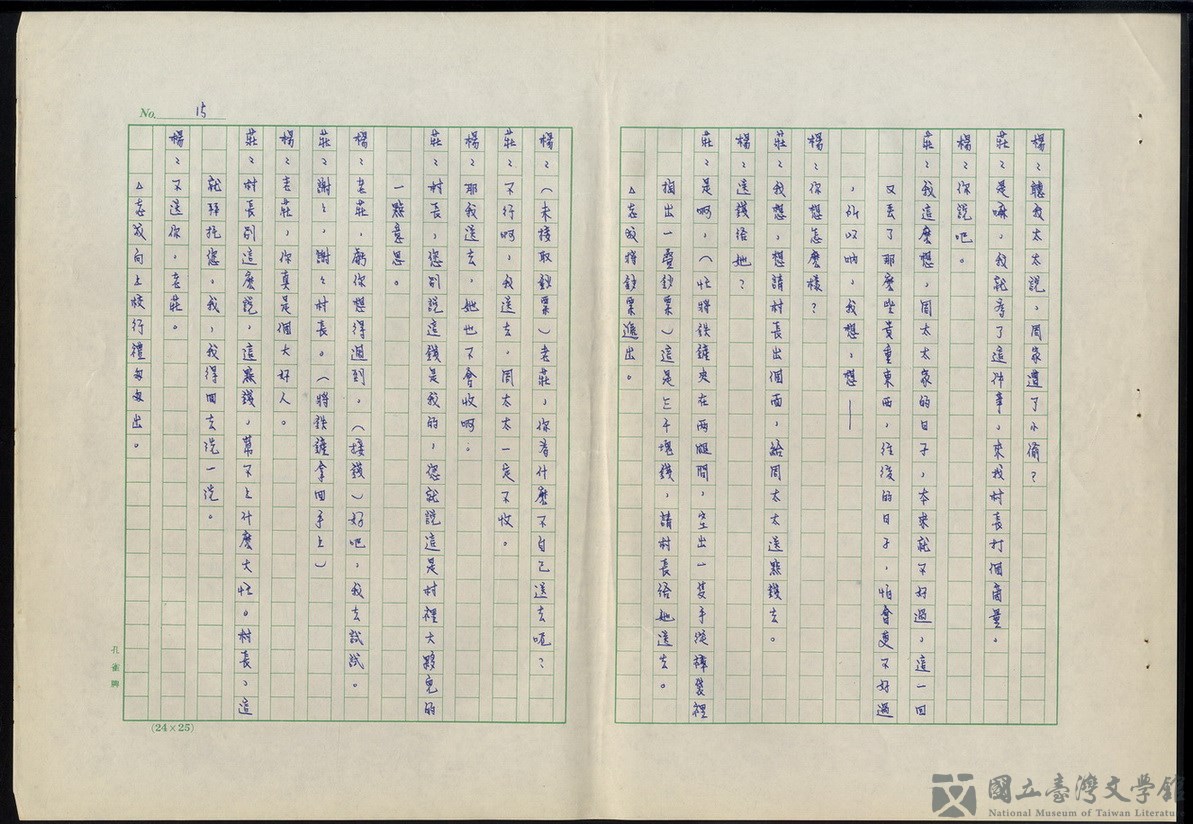 楊：聽我太太說，周家遭了小偷？
莊：是嘛，我就為了這件事，來找村長打個商量。
楊：你說吧。
莊：我這麼想，周太太家的日子，本來就不好過，這一回
又丟了那麼些貴重東西，往後的日子，怕會更不好過
，所以吶，我想，想——
楊：你想怎麼樣？
莊：我想，想請村長出個面，給周太太送點錢去。
楊：送錢給她？
莊：是啊，（忙將鉄鏟夾在兩腿間，空出一隻手從褲袋裡
掏出一疊鈔票）這是三千塊錢，請村長給她送去。
△志成將鈔票遞出。
楊：（未接取鈔票）老莊，你為什麼不自己送去呢？
莊：不行啊，我送去。周太太一定不收。
楊：那我送去，她也不會收啊。
莊：村長，您別說這錢是我的，您就說這是村裡大夥兒的
一點意思。
楊：老莊，虧你想得週到，（接錢）好吧，我去試試。
莊：謝謝，謝謝村長。（將鉄鏟拿回手上）
楊：老莊，你真是個大好人。
莊：村長別這麼說，這點錢，幫不上什麼大忙。村長，這
就拜托您。我，我得回去洗一洗。
楊：不送你，老莊。
△志成向上校行禮匆匆出。
No. 15
孔雀牌
(24×25)
國立臺灣文學館
National Museum of Taiwan Literature